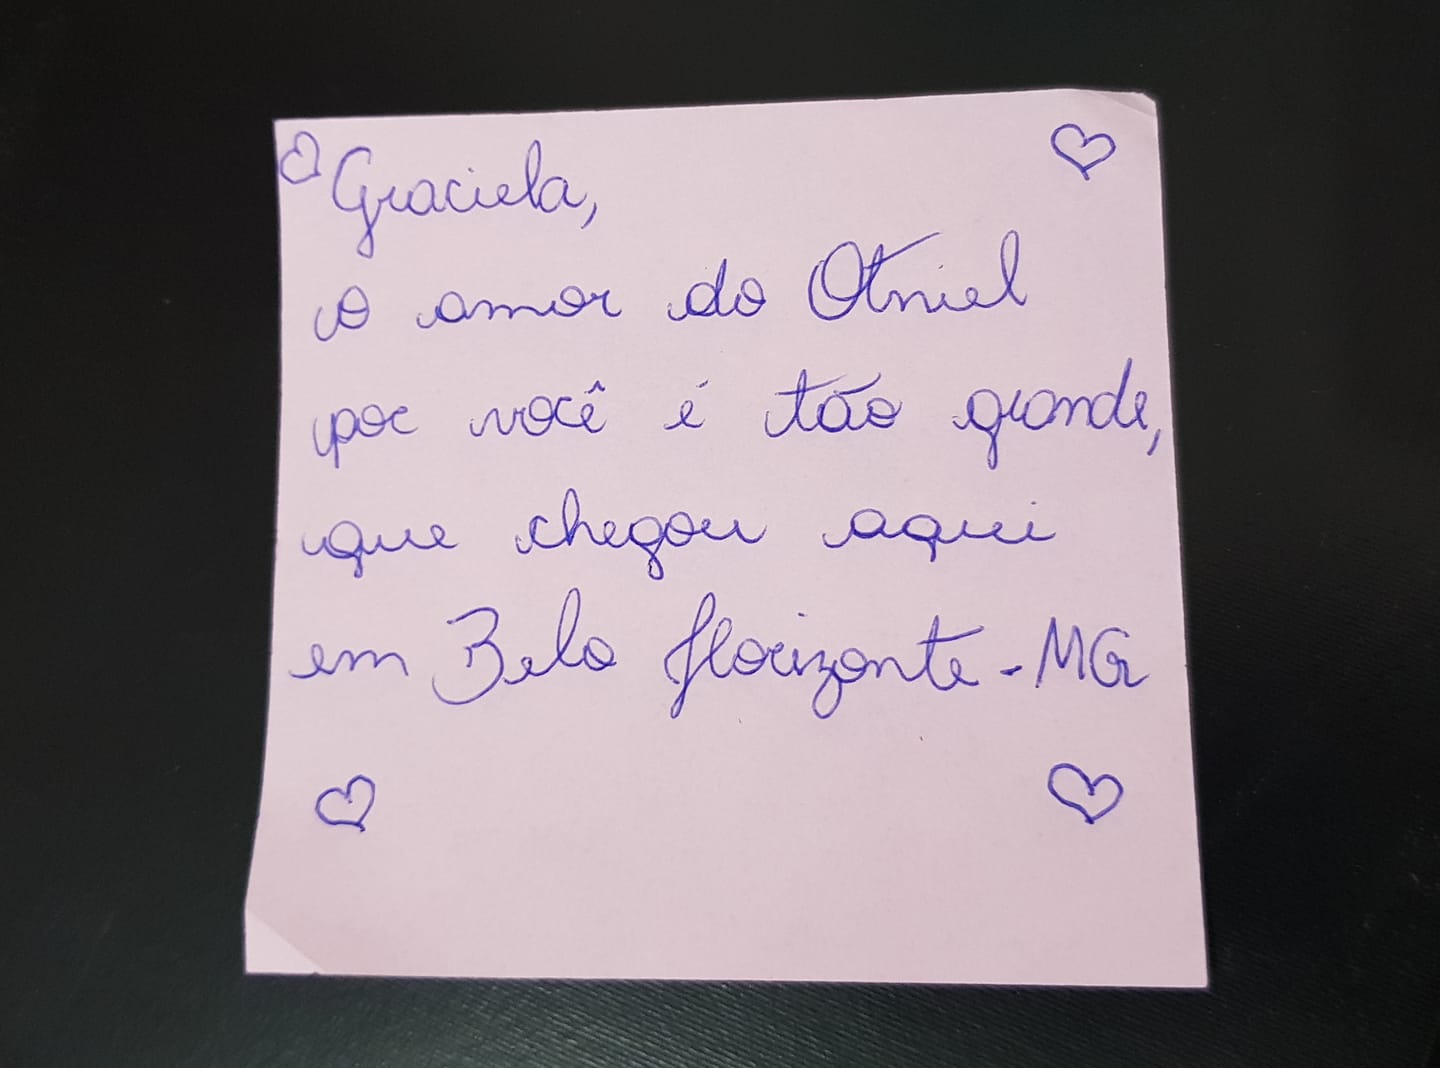 Graciela,
o amor do Otniel
por você é tão grande,
que chegou aqui
em Belo Horizonte - MG